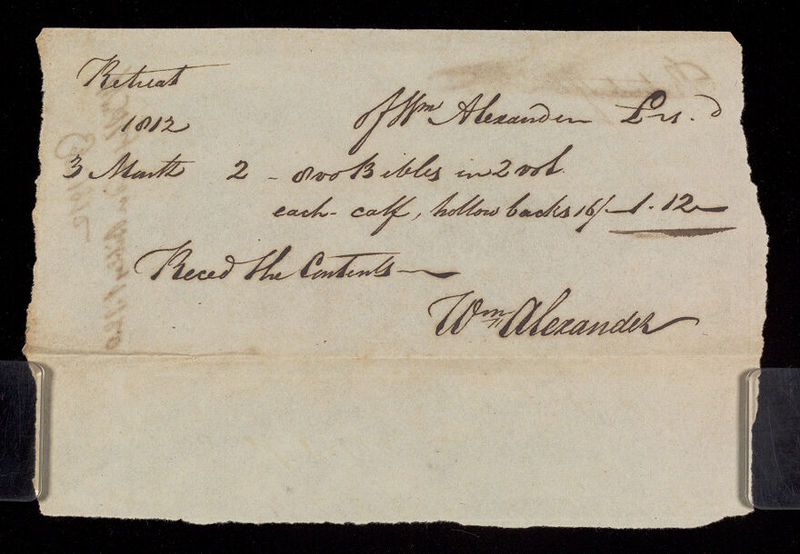 Retreat
1812 of Wm Alexander £ s. d
3 Month 2 - 8vo Bibles in 2 vol
each - calf, hollow backs 16/ - 1 . 12 -
Reced the Contents -
Wm Alexander